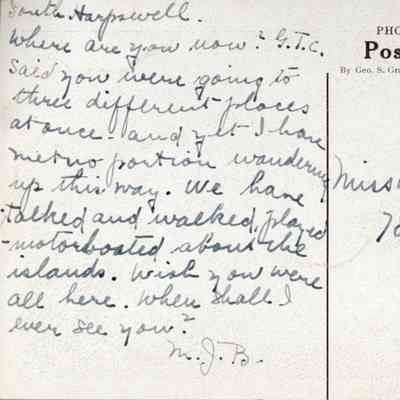 South Harpswell.
Where are you now? G.T.C.
said you were going to
three different places
at once - and yet I have
met no portion wandering
up this way. We have
talked and walked, played
- motorboated about the
islands. Wish you were
all here. When shall I
ever see you?
M.J.B.
PHO
Pos
By Geo. S. Gra
Miss